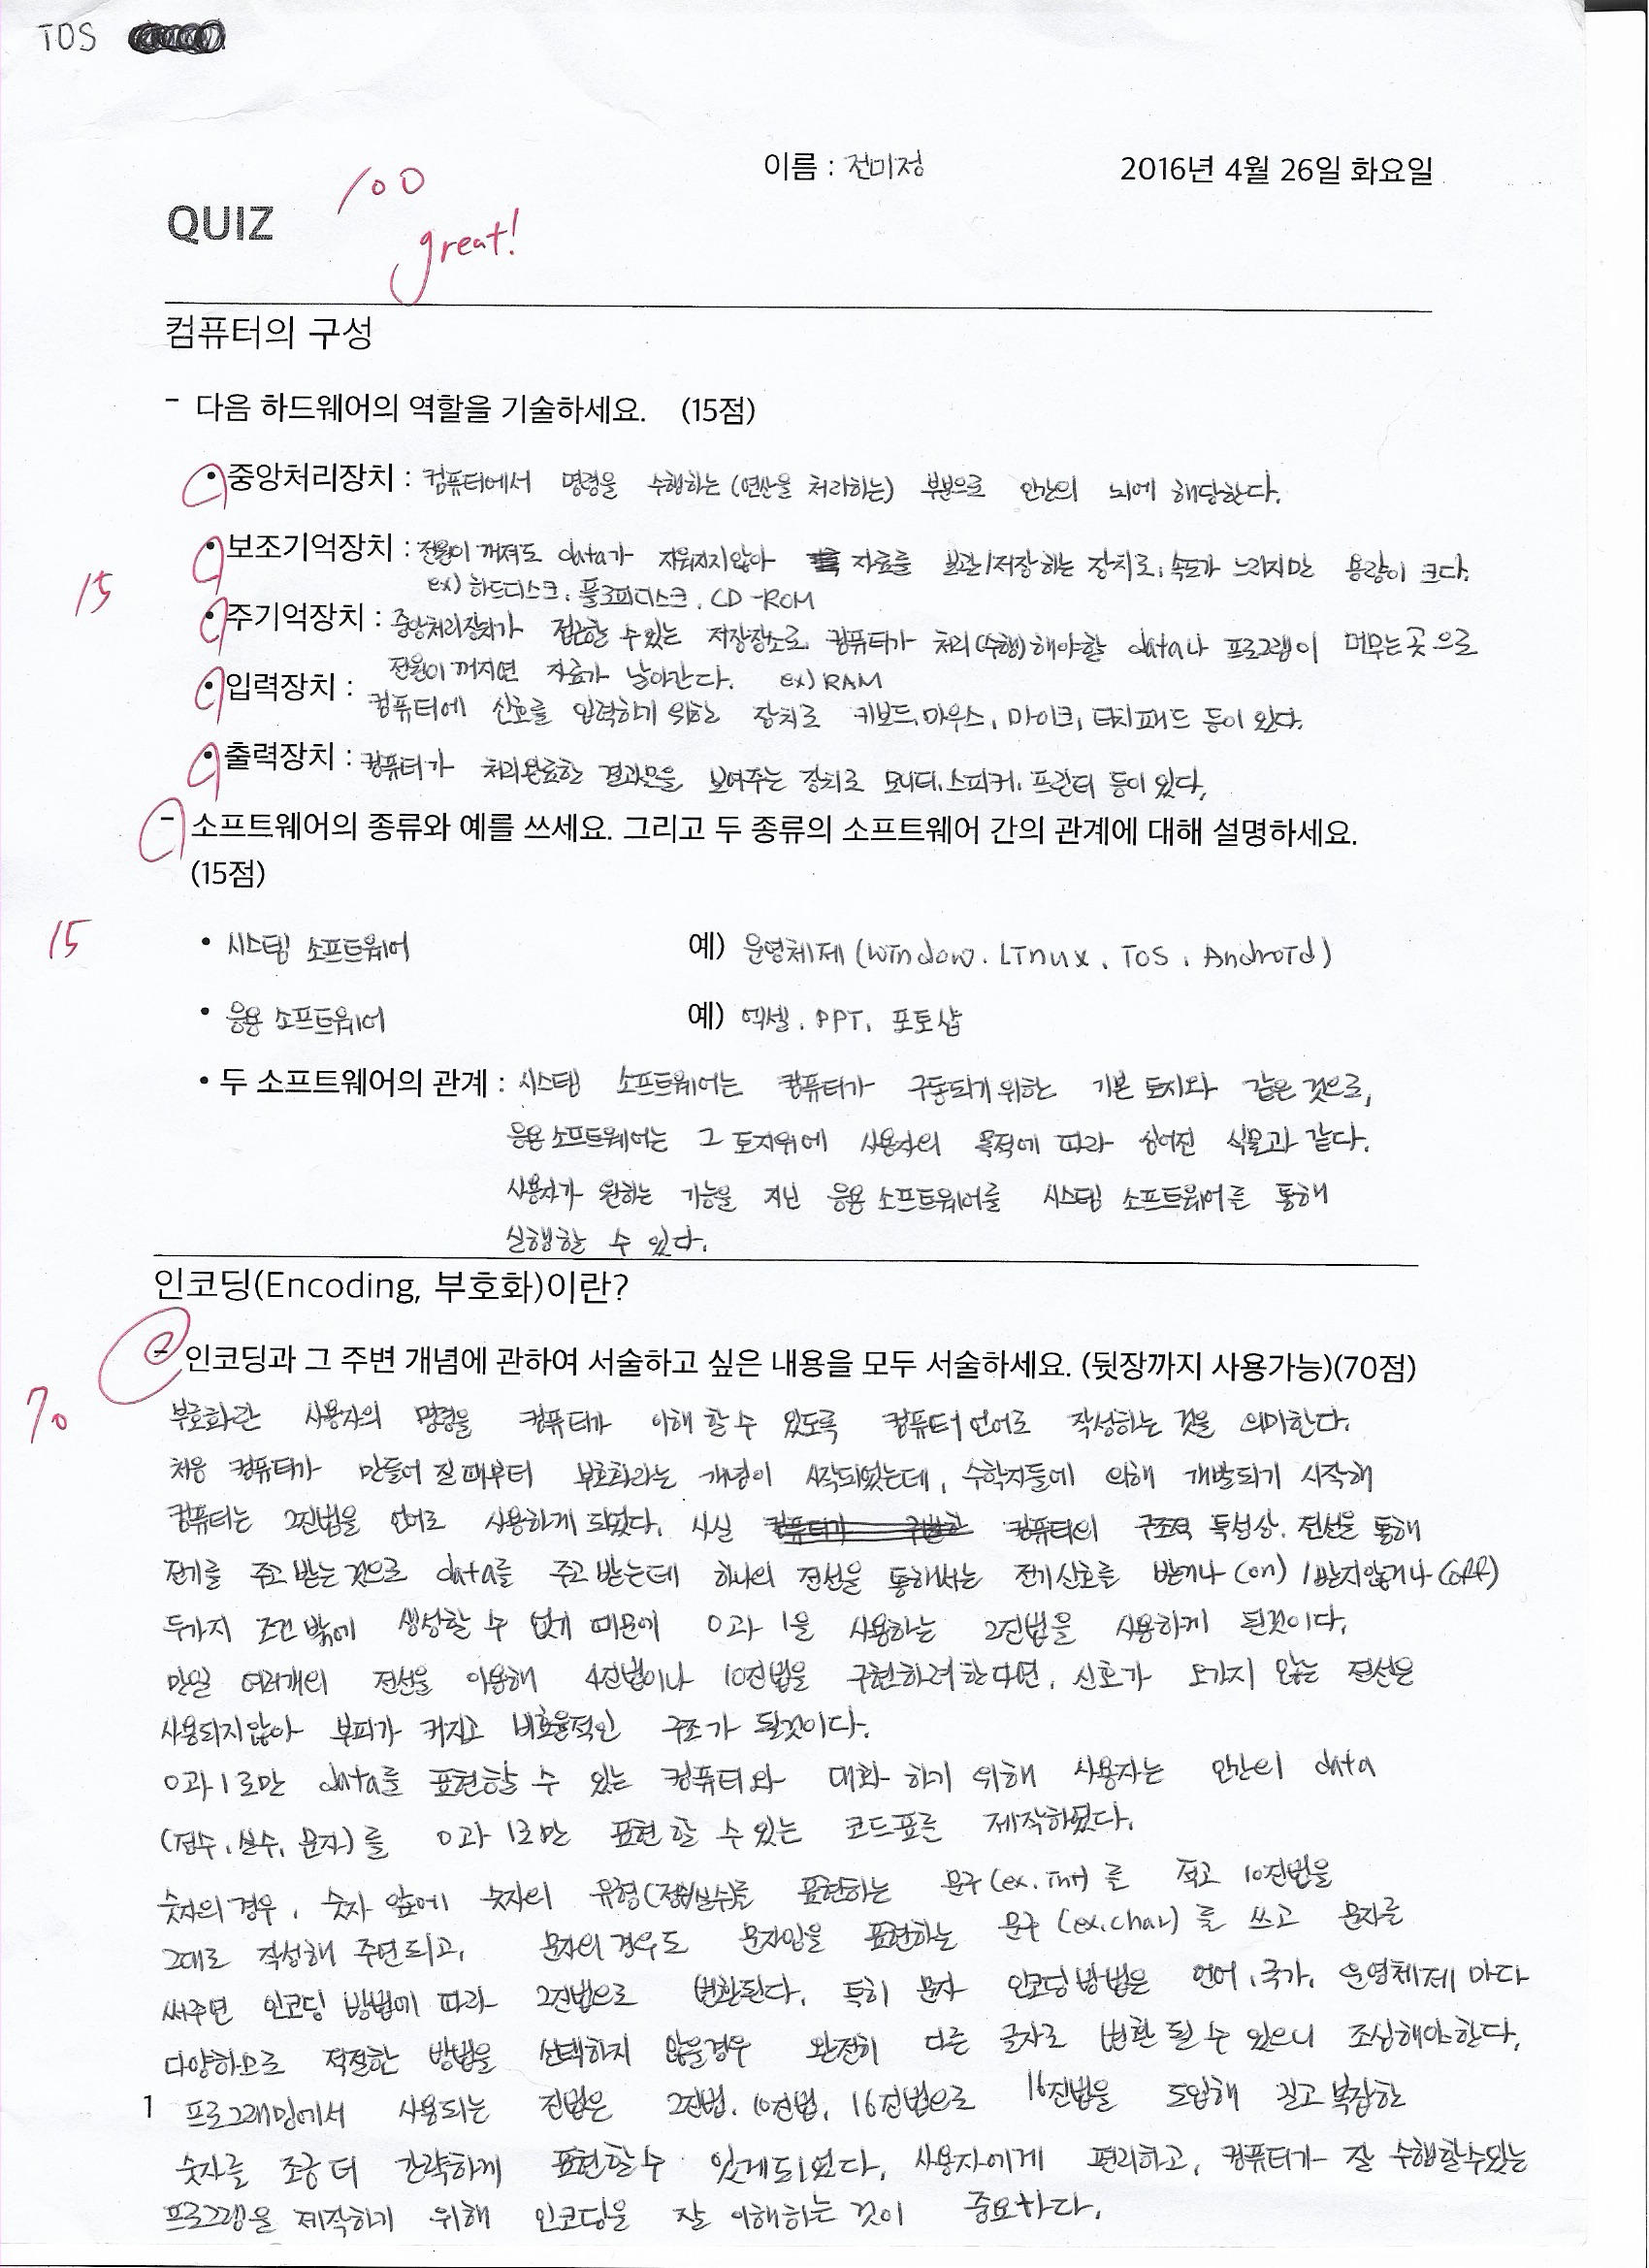 IOS
이름 : 전미정
2016년 4월 26일 화요일
100
QUIZ
great!
컴퓨터의 구성
- 다음 하드웨어의 역할을 기술하세요. (15점)
• 중앙처리장치 : 컴퓨터에서 명령을 수행하는 (연산을 처리하는) 부분으로 인간의 뇌에 해당한다.
• 보조기억장치 : 전원이 꺼져도 data가 지워지지않아 자료를 보관/저장하는 장치로, 속도가 느리지만 용량이 크다.
ex) 하드디스크, 플로피디스크, CD-ROM
15
• 주기억장치 : 중앙처리장치가 접근할 수 있는 저장장소로 컴퓨터가 처리(수행)해야할 data나 프로그램이 머무는 곳으로
전원이 꺼지면 자료가 날아간다. ex) RAM
• 입력장치 : 컴퓨터에 신호를 입력하기 위한 장치로 키보드, 마우스, 마이크, 터치패드 등이 있다.
• 출력장치 : 컴퓨터가 처리완료한 결과물을 보여주는 장치로 모니터, 스피커, 프린터 등이 있다.
- 소프트웨어의 종류와 예를 쓰세요. 그리고 두 종류의 소프트웨어 간의 관계에 대해 설명하세요.
(15점)
15
• 시스템 소프트웨어 예) 운영체제 (window, Linux, ios, Android)
• 응용 소프트웨어 예) 엑셀, PPT, 포토샵
• 두 소프트웨어의 관계 : 시스템 소프트웨어는 컴퓨터가 구동되기 위한 기본 토지와 같은 것으로,
응용 소프트웨어는 그 토지위에 사용자의 목적에 따라 심어진 식물과 같다.
사용자가 원하는 기능을 지닌 응용 소프트웨어를 시스템 소프트웨어를 통해
실행할 수 있다.
인코딩(Encoding, 부호화)이란?
- 인코딩과 그 주변 개념에 관하여 서술하고 싶은 내용을 모두 서술하세요. (뒷장까지 사용가능)(70점)
70
부호화란 사용자의 명령을 컴퓨터가 이해 할 수 있도록 컴퓨터 언어로 작성하는 것을 의미한다.
처음 컴퓨터가 만들어 질 때부터 부호화라는 개념이 시작되었는데, 수학자들에 의해 개발되기 시작해
컴퓨터는 2진법을 언어로 사용하게 되었다. 사실 컴퓨터의 구조적 특성상, 전선을 통해
전기를 주고 받는 것으로 data를 주고 받는데 하나의 전선을 통해서는 전기신호를 받거나 (on) / 받지않거나 (off)
두가지 조건 밖에 생성할 수 없기 때문에 0과 1을 사용하는 2진법을 사용하게 된것이다.
만일 여러개의 전선을 이용해 4진법이나 10진법을 구현하려한다면, 신호가 오가지 않는 전선은
사용되지않아 부피가 커지고 비효율적인 구조가 될것이다.
0과 1로만 data를 표현할 수 있는 컴퓨터와 대화 하기 위해 사용자는 인간의 data
(정수, 실수, 문자)를 0과 1로만 표현 할 수 있는 코드표를 제작하였다.
숫자의 경우, 숫자 앞에 숫자의 유형(정수/실수)를 표현하는 문구 (ex. int)를 적고 10진법을
그대로 작성해 주면되고, 문자의 경우도 문자임을 표현하는 문구 (ex. char)를 쓰고 문자를
써주면 인코딩 방법에 따라 2진법으로 변환된다. 특히 문자 인코딩방법은 언어, 국가, 운영체제 마다
다양하므로 적절한 방법을 선택하지 않을경우 완전히 다른 글자로 변환 될 수 있으니 조심해야한다.
1
프로그래밍에서 사용되는 진법은 2진법, 10진법, 16진법으로 16진법을 도입해 길고 복잡한
숫자를 조금 더 간략하게 표현할 수 있게되었다. 사용자에게 편리하고, 컴퓨터가 잘 수행할수있는
프로그램을 제작하기 위해 인코딩을 잘 이해하는 것이 중요하다.